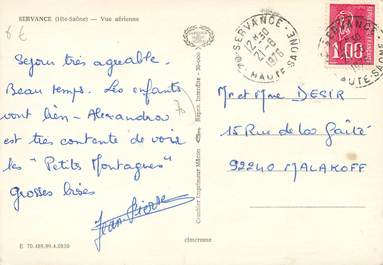 SERVANCE (Hte-Saône) — Vue aérienne
6 €
Sejour très agreable.
Beau temps. Les enfants
vont bien - Alexandra
est très contente de voir
les "Petits Montagnes"
grosses bises
Jean Pierre
E 70.489.99.4.0850
cimcramo
Combier Imprimeur Mâcon
SERVANCE
12 H 30
1976
HAUTE-SAONE
SERVANCE
HAUTE-SAONE
1,00
Mr et Mme DESIR
15 Rue de la Gaîté
92240 MALAKOFF